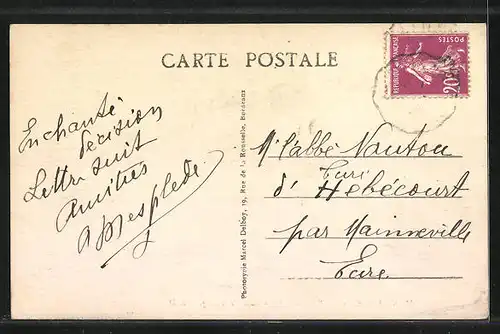 CARTE POSTALE
REPUBLIQUE FRANÇAISE
POSTES
20c
Enchanté
décision
Lettre suit
Amitiés
Photogravie Marcel Delboy, 19, Rue de la Rousselle, Bordeaux
Mr l'abbé
Curé
d'Hébécourt
par Mainneville
Eure